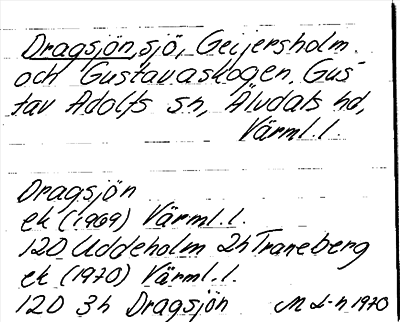 Dragsjön, sjö, Geijersholm
och Gustavaskogen, Gus-
tav Adolfs sn, Älvdals hd,
Värml. l.
Dragsjön
ek (1969) Värml. l.
12D Uddeholm 2h Traneberg
ek (1970) Värml. l.
12D 3h Dragsjön M L-n 1970